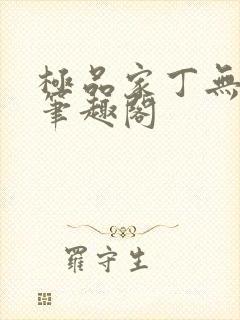 極品家丁無
筆趣閣
羅守生